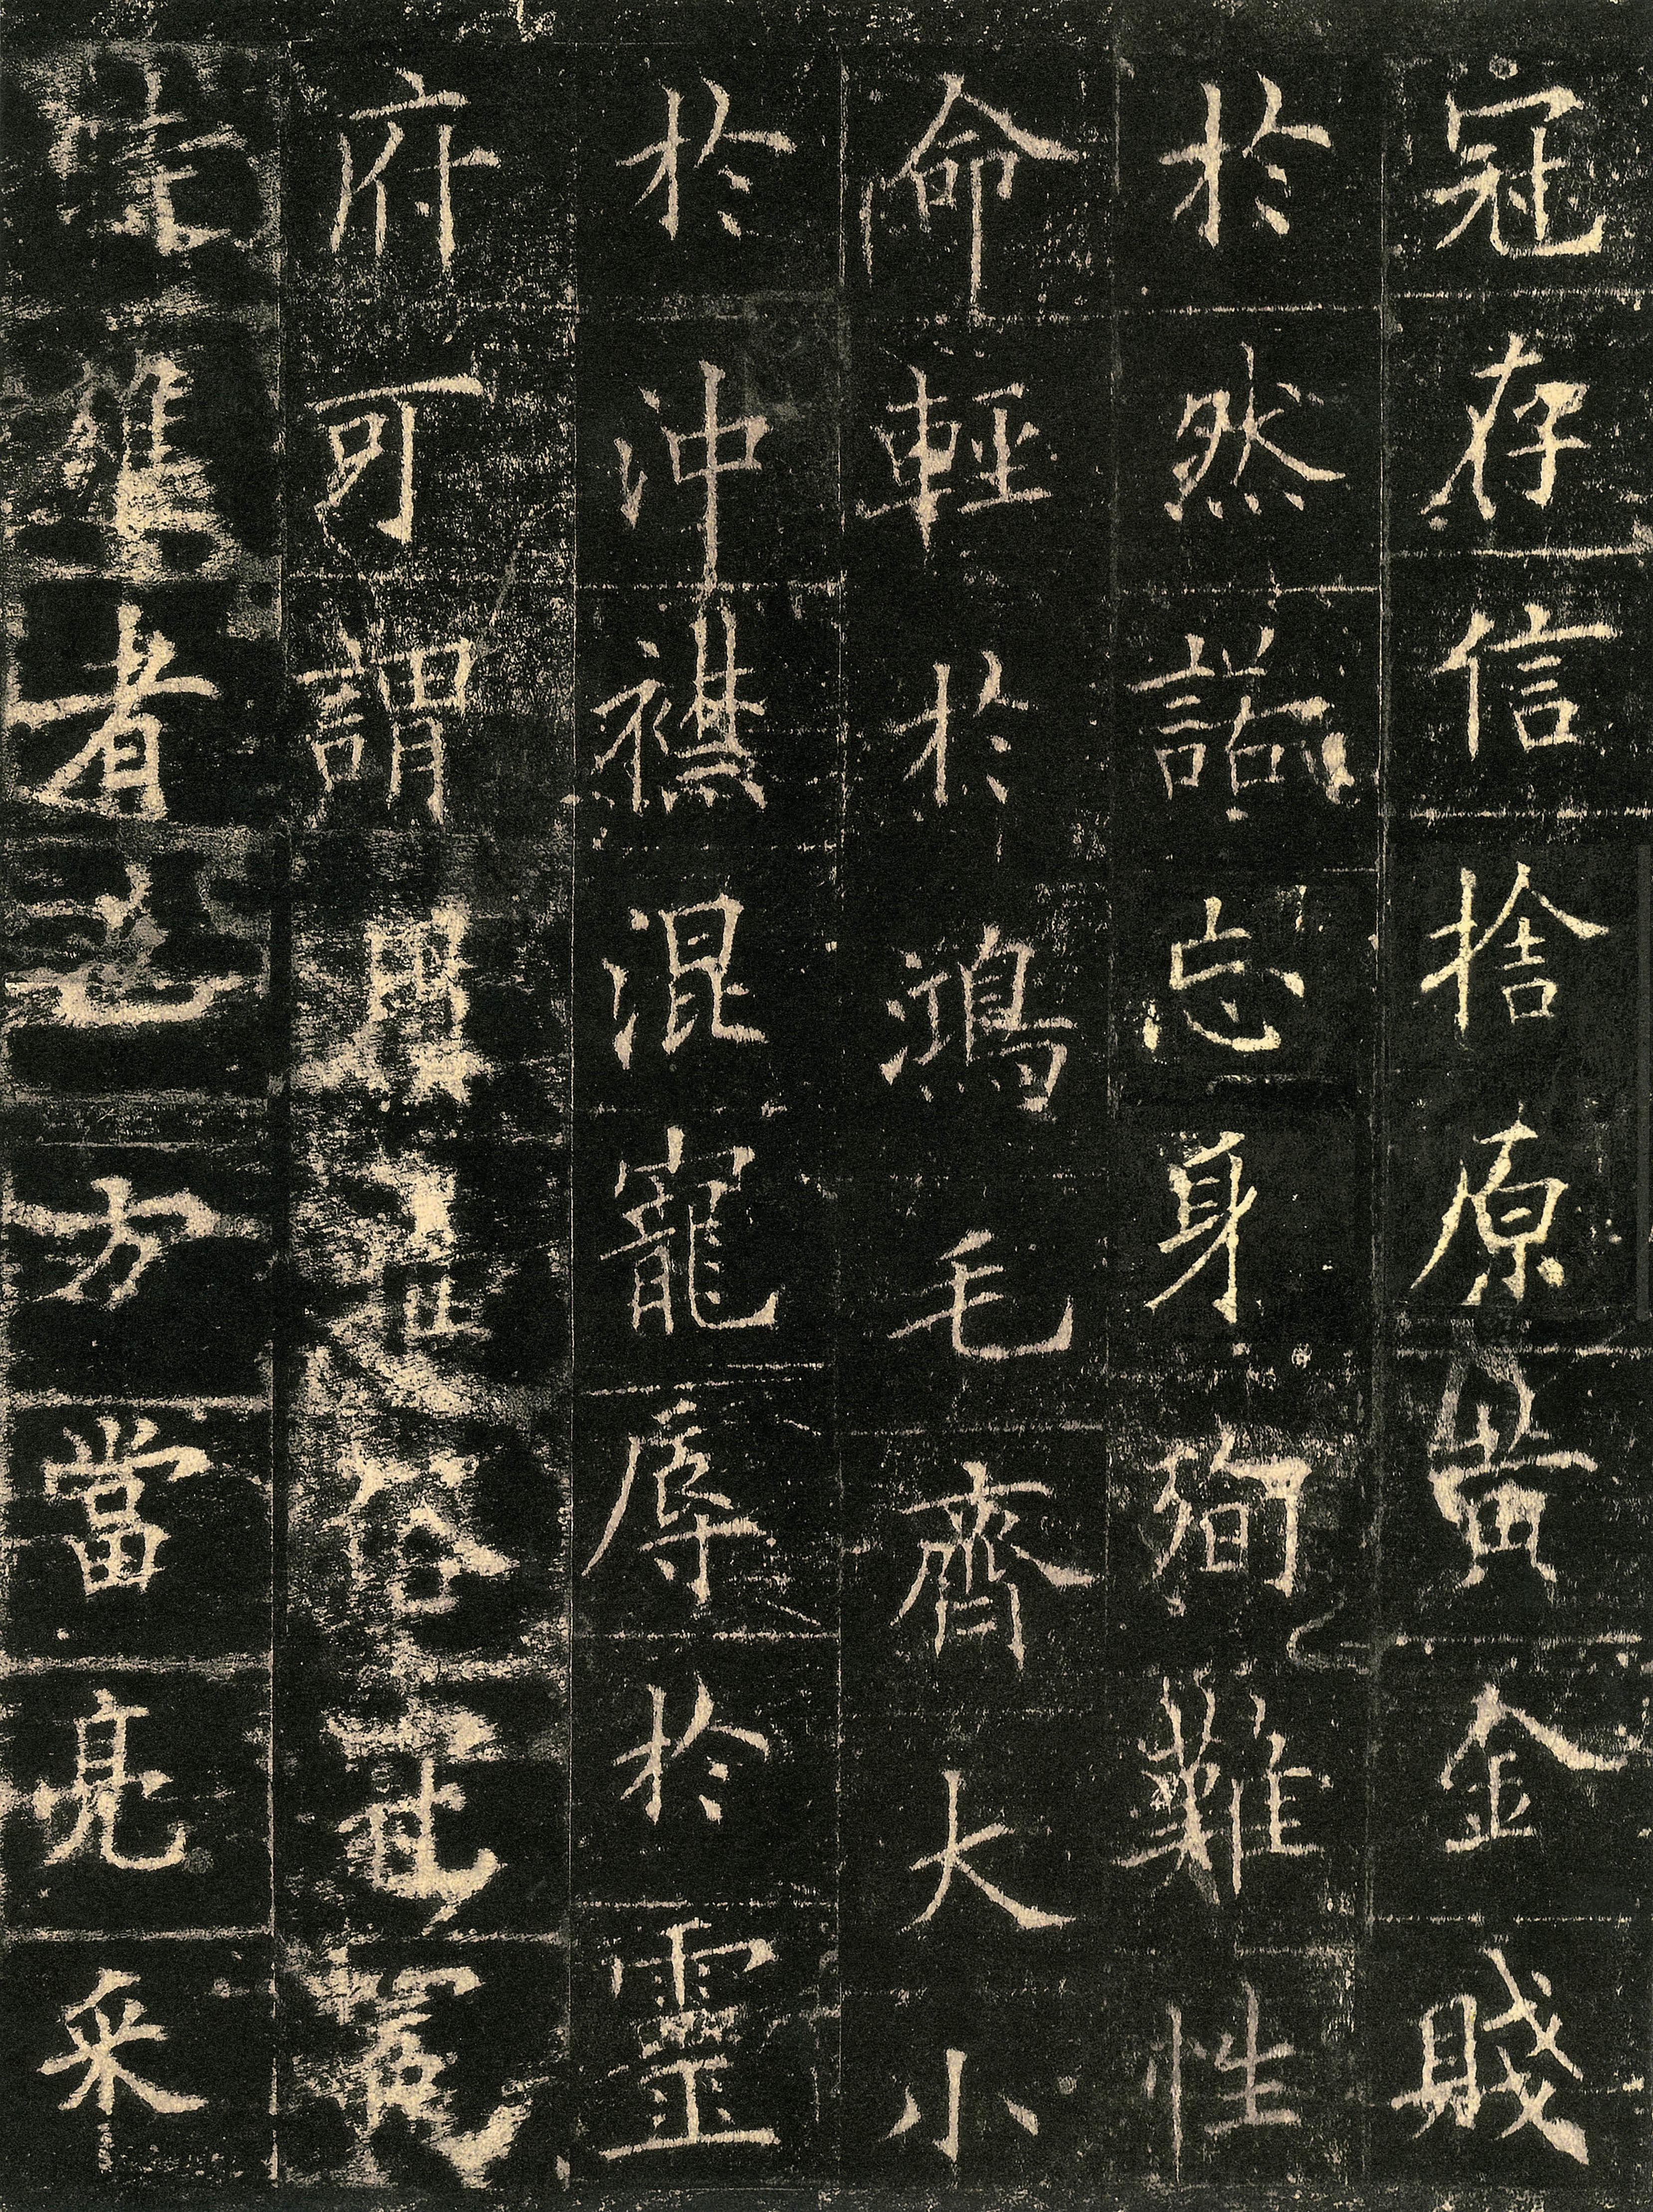 冠存信捨原黃金賤
於然諾忘身殉難性
命輕於鴻毛齊大小
於沖襟混寵辱於靈
府可謂
者也方當亮采